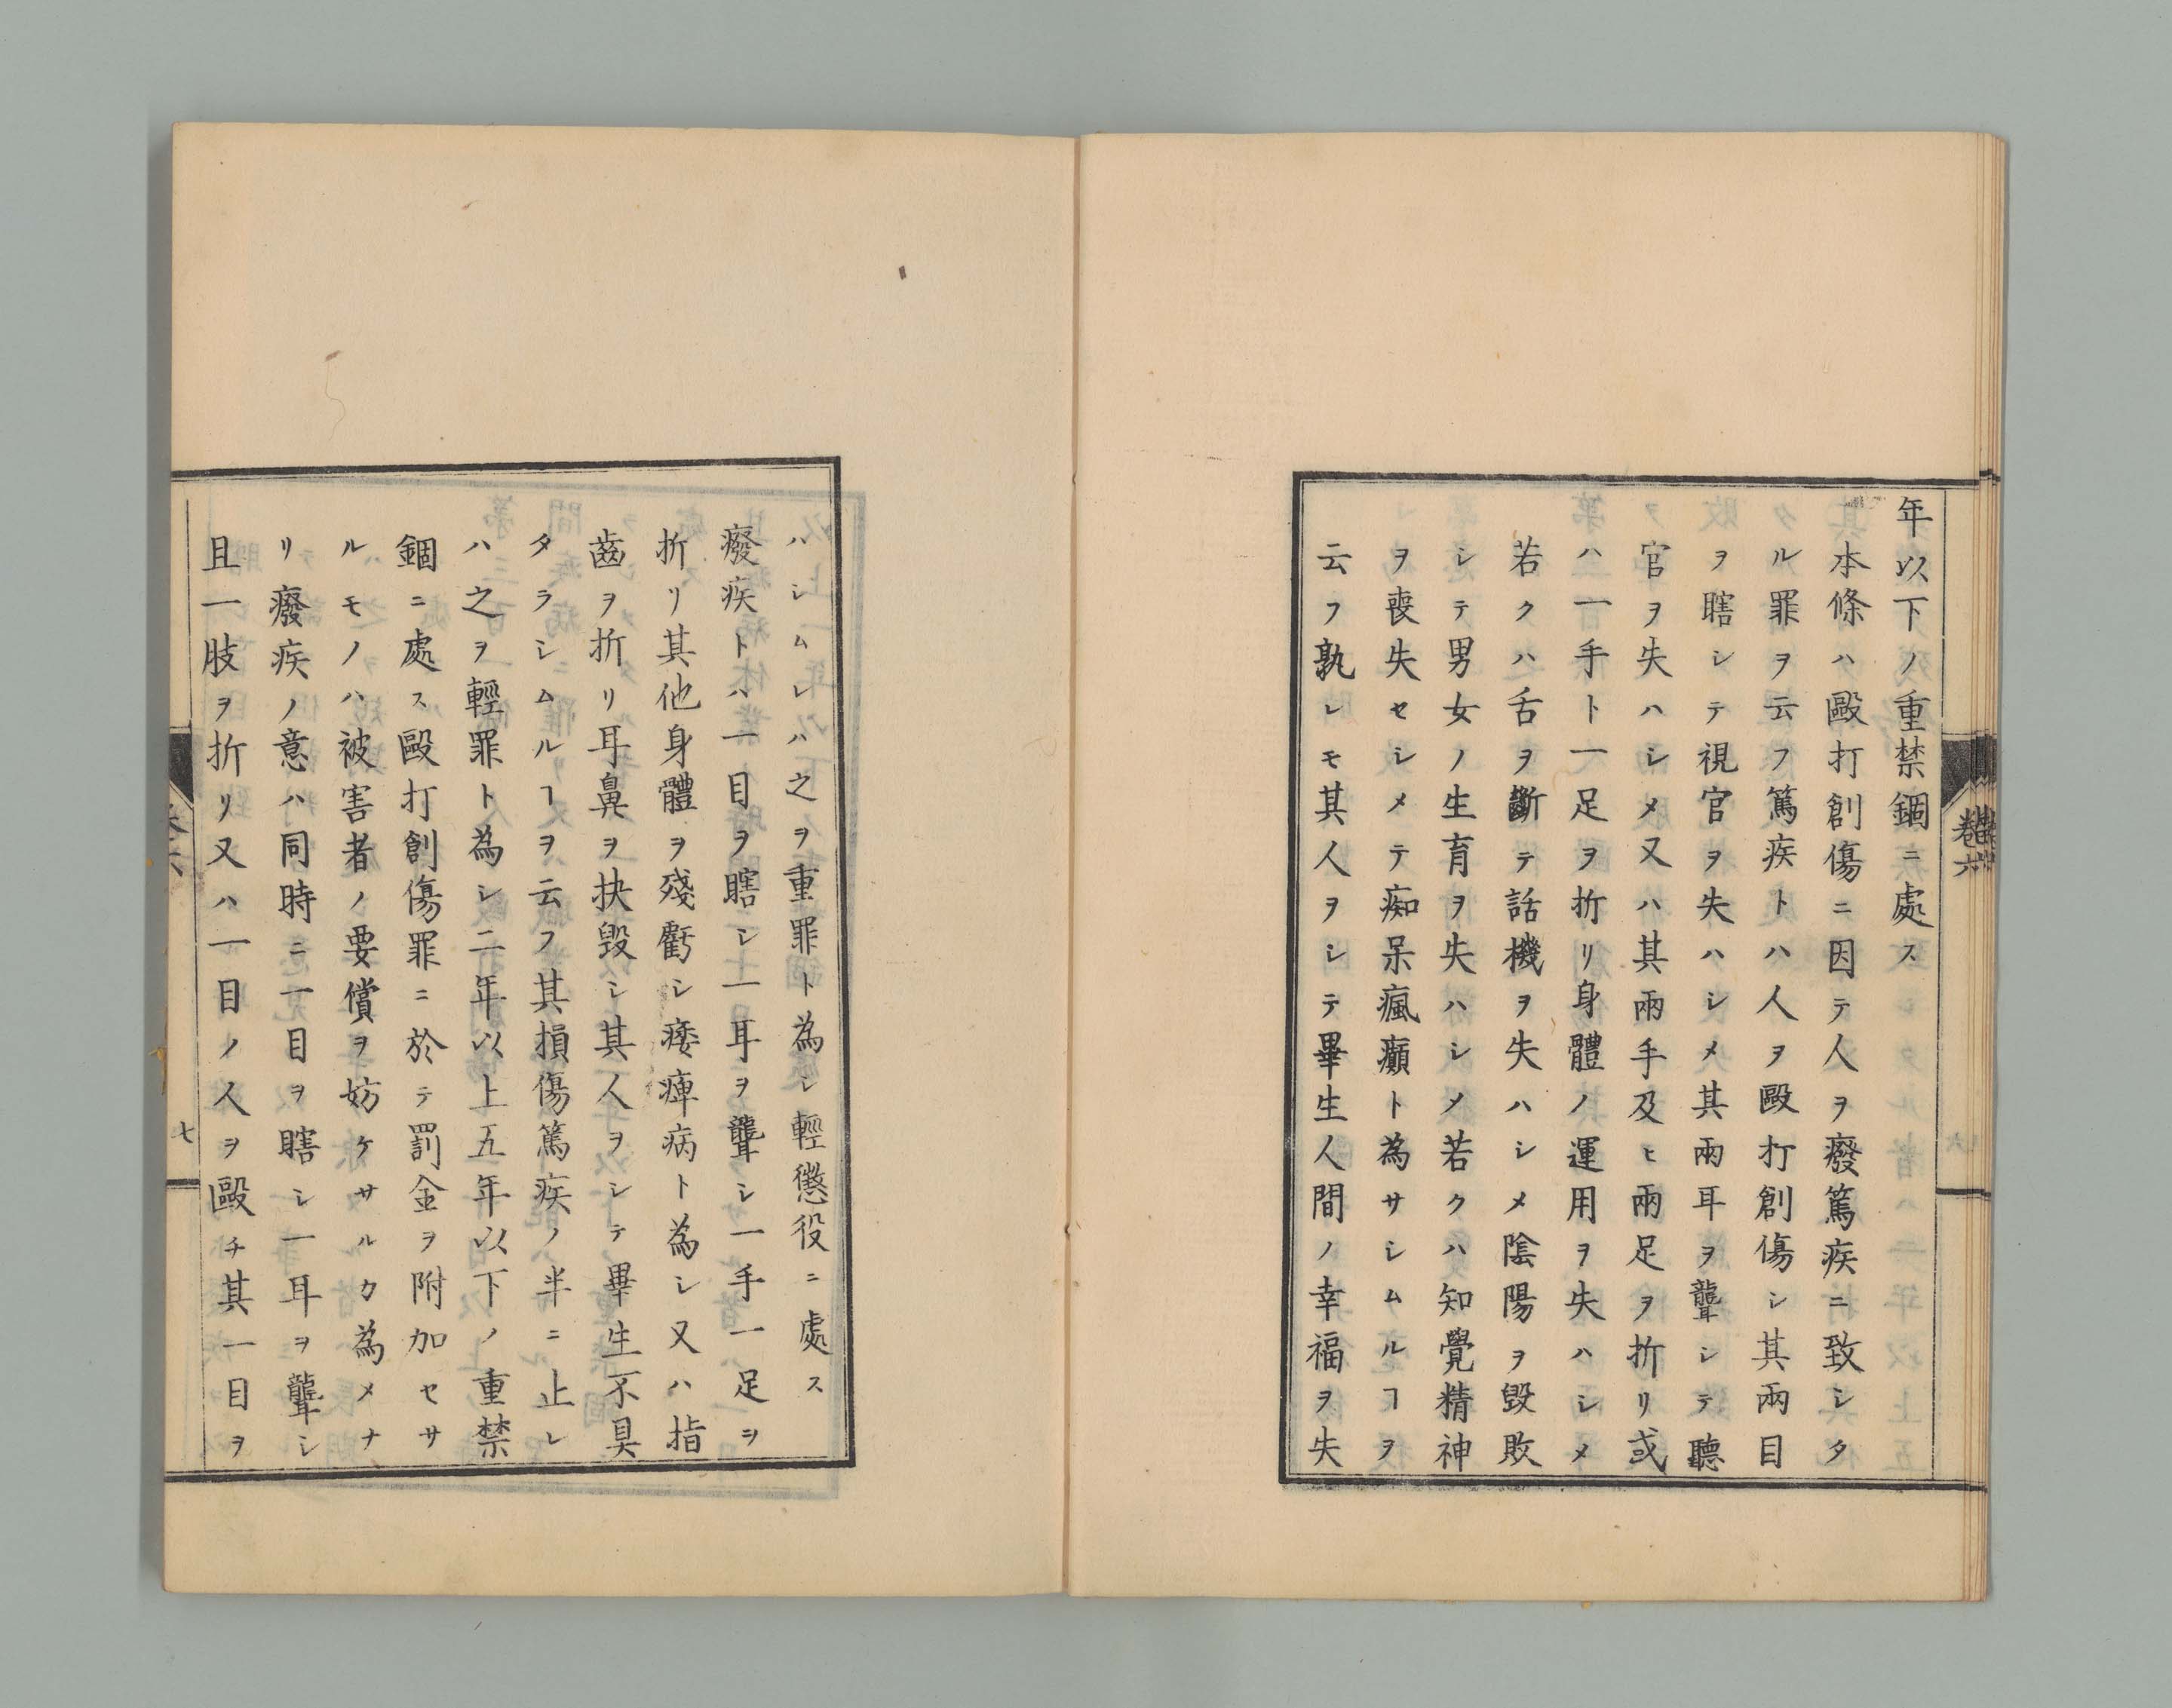 年以下ノ重禁錮ニ處ス
本條ハ毆打創傷ニ因テ人ヲ癈篤疾ニ致シタ
ル罪ヲ云フ篤疾トハ人ヲ毆打創傷シ其兩目
ヲ瞎シテ視官ヲ失ハシメ其兩耳ヲ聾シテ聽
官ヲ失ハシメ又ハ其兩手及ヒ兩足ヲ折リ或
ハ一手ト一足ヲ折リ身體ノ運用ヲ失ハシメ
若クハ舌ヲ斷テ話機ヲ失ハシメ陰陽ヲ毀敗
シテ男女ノ生育ヲ失ハシメ若クハ知覺精神
ヲ喪失セシメテ痴呆瘋癲ト為サシムルヿヲ
云フ孰レモ其人ヲシテ畢生人間ノ幸福ヲ失
ハシムレハ之ヲ重罪ト為シ輕懲役ニ處ス
癈疾トハ一目ヲ瞎シ一耳ヲ聾シ一手一足ヲ
折リ其他身體ヲ殘虧シ痿痺病ト為シ又ハ指
齒ヲ折リ耳鼻ヲ抉毀シ其人ヲシテ畢生不具
タラシムルヿヲ云フ其損傷篤疾ノ半ニ止レ
ハ之ヲ輕罪ト為シ二年以上五年以下ノ重禁
錮ニ處ス毆打創傷罪ニ於テ罰金ヲ附加セサ
ルモノハ被害者ノ要償ヲ妨ケサルカ為メナ
リ癈疾ノ意ハ同時ニ一目ヲ瞎シ一耳ヲ聾シ
且一肢ヲ折リ又ハ一目ノ人ヲ毆チ其一目ヲ
卷六
七